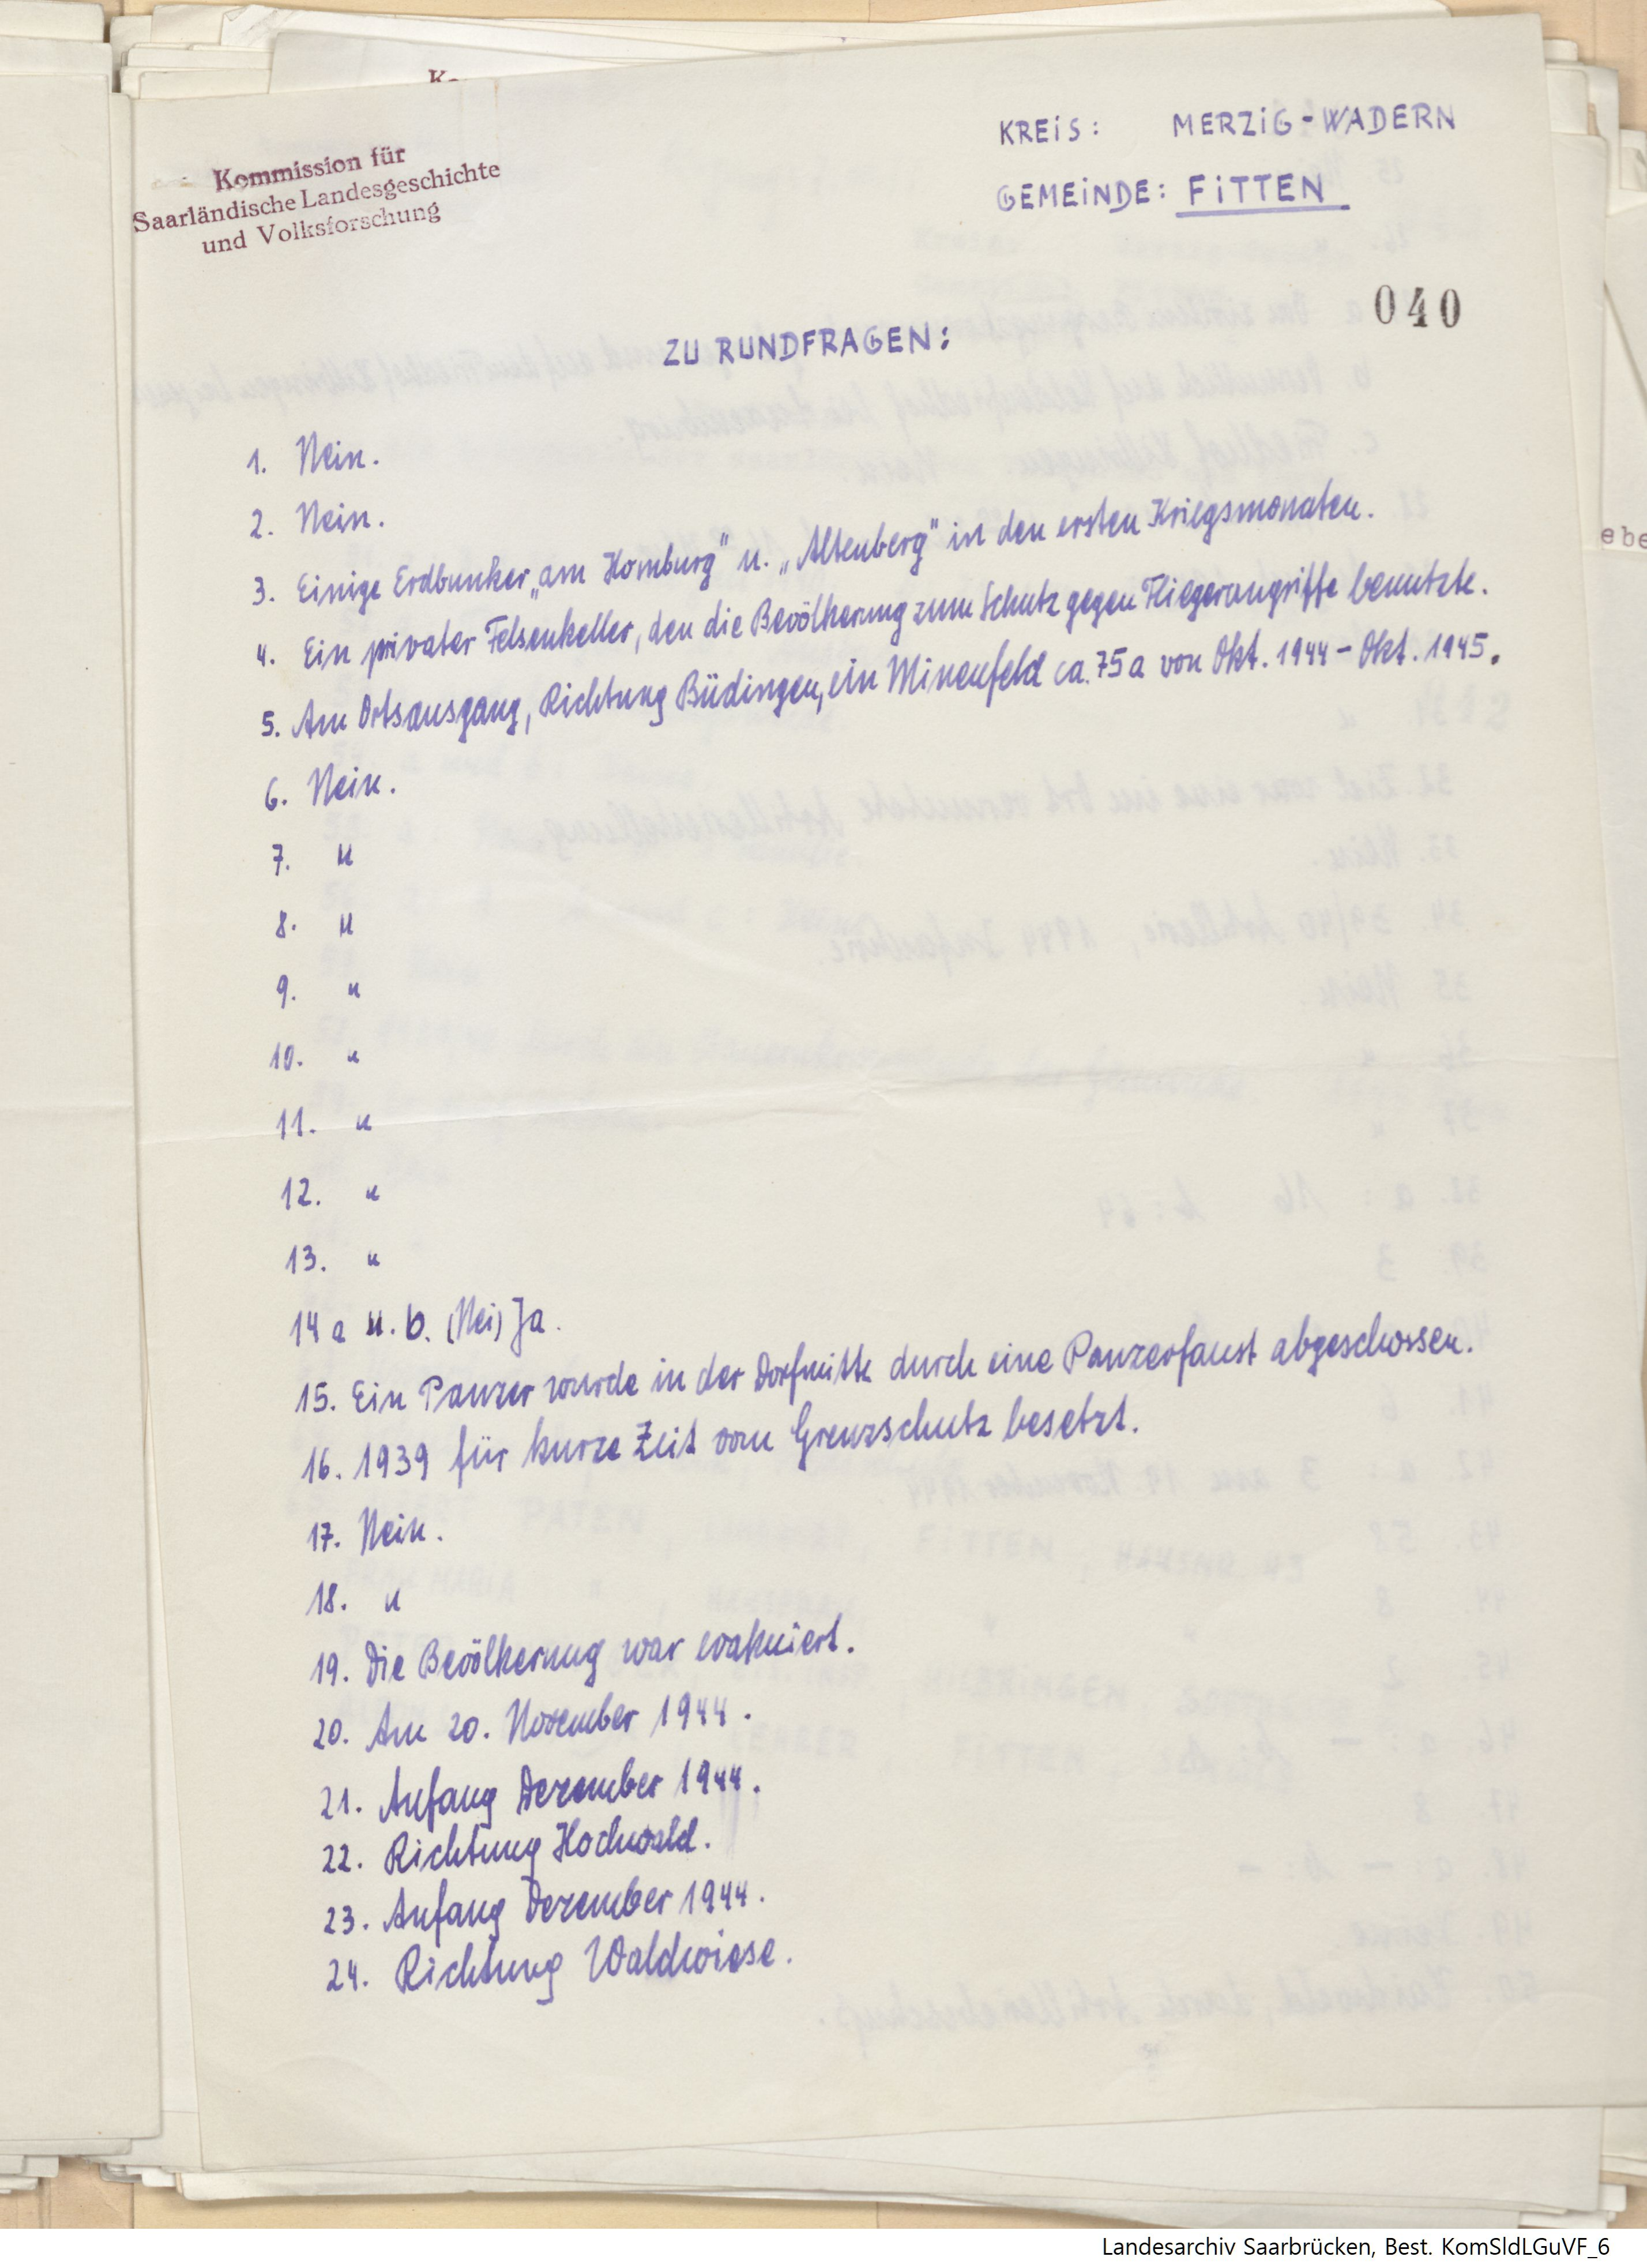 Kommission für
Saarländische Landesgeschichte
und Volksforschung
KREIS: MERZIG-WADERN
GEMEINDE: FITTEN
040
ZU RUNDFRAGEN:
1. Nein.
2. Nein.
3. Einige Erdbunker „am Homburg" u. „Altenberg" in den ersten Kriegsmonaten.
4. Ein privater Felsenkeller, den die Bevölkerung zum Schutz gegen Fliegerangriffe benutzte.
5. Am Ortsausgang, Richtung Büdingen, ein Minenfeld ca. 75 a von Okt. 1944 - Okt. 1945.
6. Nein.
7. "
8. "
9. "
10. "
11. "
12. "
13. "
14 a u. b. (Nei) Ja.
15. Ein Panzer wurde in der Dorfmitte durch eine Panzerfaust abgeschossen.
16. 1939 für kurze Zeit vom Grenzschutz besetzt.
17. Nein.
18. "
19. Die Bevölkerung war evakuiert.
20. Am 20. November 1944.
21. Anfang Dezember 1944.
22. Richtung Hochwald.
23. Anfang Dezember 1944.
24. Richtung Waldwiese.
Landesarchiv Saarbrücken, Best. KomSldLGuVF_6